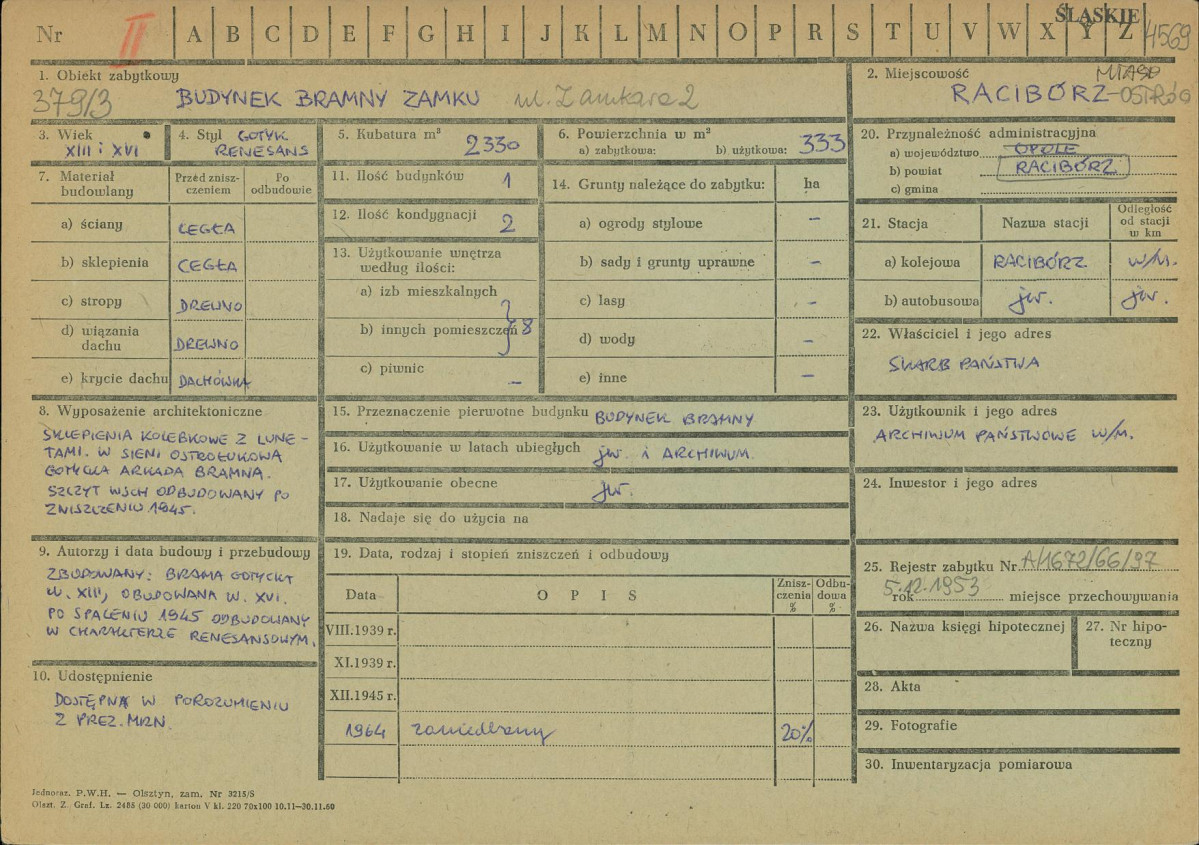 Nr II A B C D E F G H I J K L M N O P R S T U V W X Y Z
ŚLĄSKIE
4569
1. Obiekt zabytkowy
379/3 BUDYNEK BRAMNY ZAMKU ul. Zamkowa 2
2. Miejscowość
MIASTO
RACIBÓRZ-OSTRÓG
3. Wiek
XIII i XVI
4. Styl GOTYK
RENESANS
5. Kubatura m³
2330
6. Powierzchnia w m²
a) zabytkowa: b) użytkowa: 333
7. Materiał budowlany
Przed zniszczeniem
Po odbudowie
a) ściany CEGŁA
b) sklepienia CEGŁA
c) stropy DREWNO
d) wiązania dachu DREWNO
e) krycie dachu DACHÓWKA
8. Wyposażenie architektoniczne
SKLEPIENIA KOLEBKOWE Z LUNE-
TAMI. W SIENI OSTROŁUKOWA
GOTYCKA ARKADA BRAMNA.
SZCZYT WSCH ODBUDOWANY PO
ZNISZCZENIU 1945.
9. Autorzy i data budowy i przebudowy
ZBUDOWANY: BRAMA GOTYCKA
W. XIII, OBUDOWANA W. XVI.
PO SPALENIU 1945 ODBUDOWANY
W CHARAKTERZE RENESANSOWYM.
10. Udostępnienie
DOSTĘPNA W POROZUMIENIU
Z PREZ. MRN.
11. Ilość budynków 1
12. Ilość kondygnacji 2
13. Użytkowanie wnętrza
według ilości:
a) izb mieszkalnych
b) innych pomieszczeń } 8
c) piwnic –
14. Grunty należące do zabytku: ha
a) ogrody stylowe –
b) sady i grunty uprawne –
c) lasy –
d) wody –
e) inne –
15. Przeznaczenie pierwotne budynku BUDYNEK BRAMNY
16. Użytkowanie w latach ubiegłych jw. i ARCHIWUM.
17. Użytkowanie obecne jw.
18. Nadaje się do użycia na
19. Data, rodzaj i stopień zniszczeń i odbudowy
Data OPIS Zniszczenia % Odbudowa %
VIII.1939 r.
XI.1939 r.
XII.1945 r.
1964 zaniedbany 20%
20. Przynależność administracyjna
a) województwo OPOLE
b) powiat RACIBÓRZ
c) gmina
21. Stacja
Nazwa stacji
Odległość
od stacji
w km
a) kolejowa RACIBÓRZ W/M.
b) autobusowa jw. jw.
22. Właściciel i jego adres
SKARB PAŃSTWA
23. Użytkownik i jego adres
ARCHIWUM PAŃSTWOWE W/M.
24. Inwestor i jego adres
25. Rejestr zabytku Nr A/1672/66/97
5.12.1953 rok miejsce przechowywania
26. Nazwa księgi hipotecznej
27. Nr hipo-
teczny
28. Akta
29. Fotografie
30. Inwentaryzacja pomiarowa
Jednoraz. P.W.H. — Olsztyn, zam. Nr 3215/S
Olszt. Z. Graf. Lz. 2485 (30 000) karton V kl. 220 70x100 10.11—30.11.60